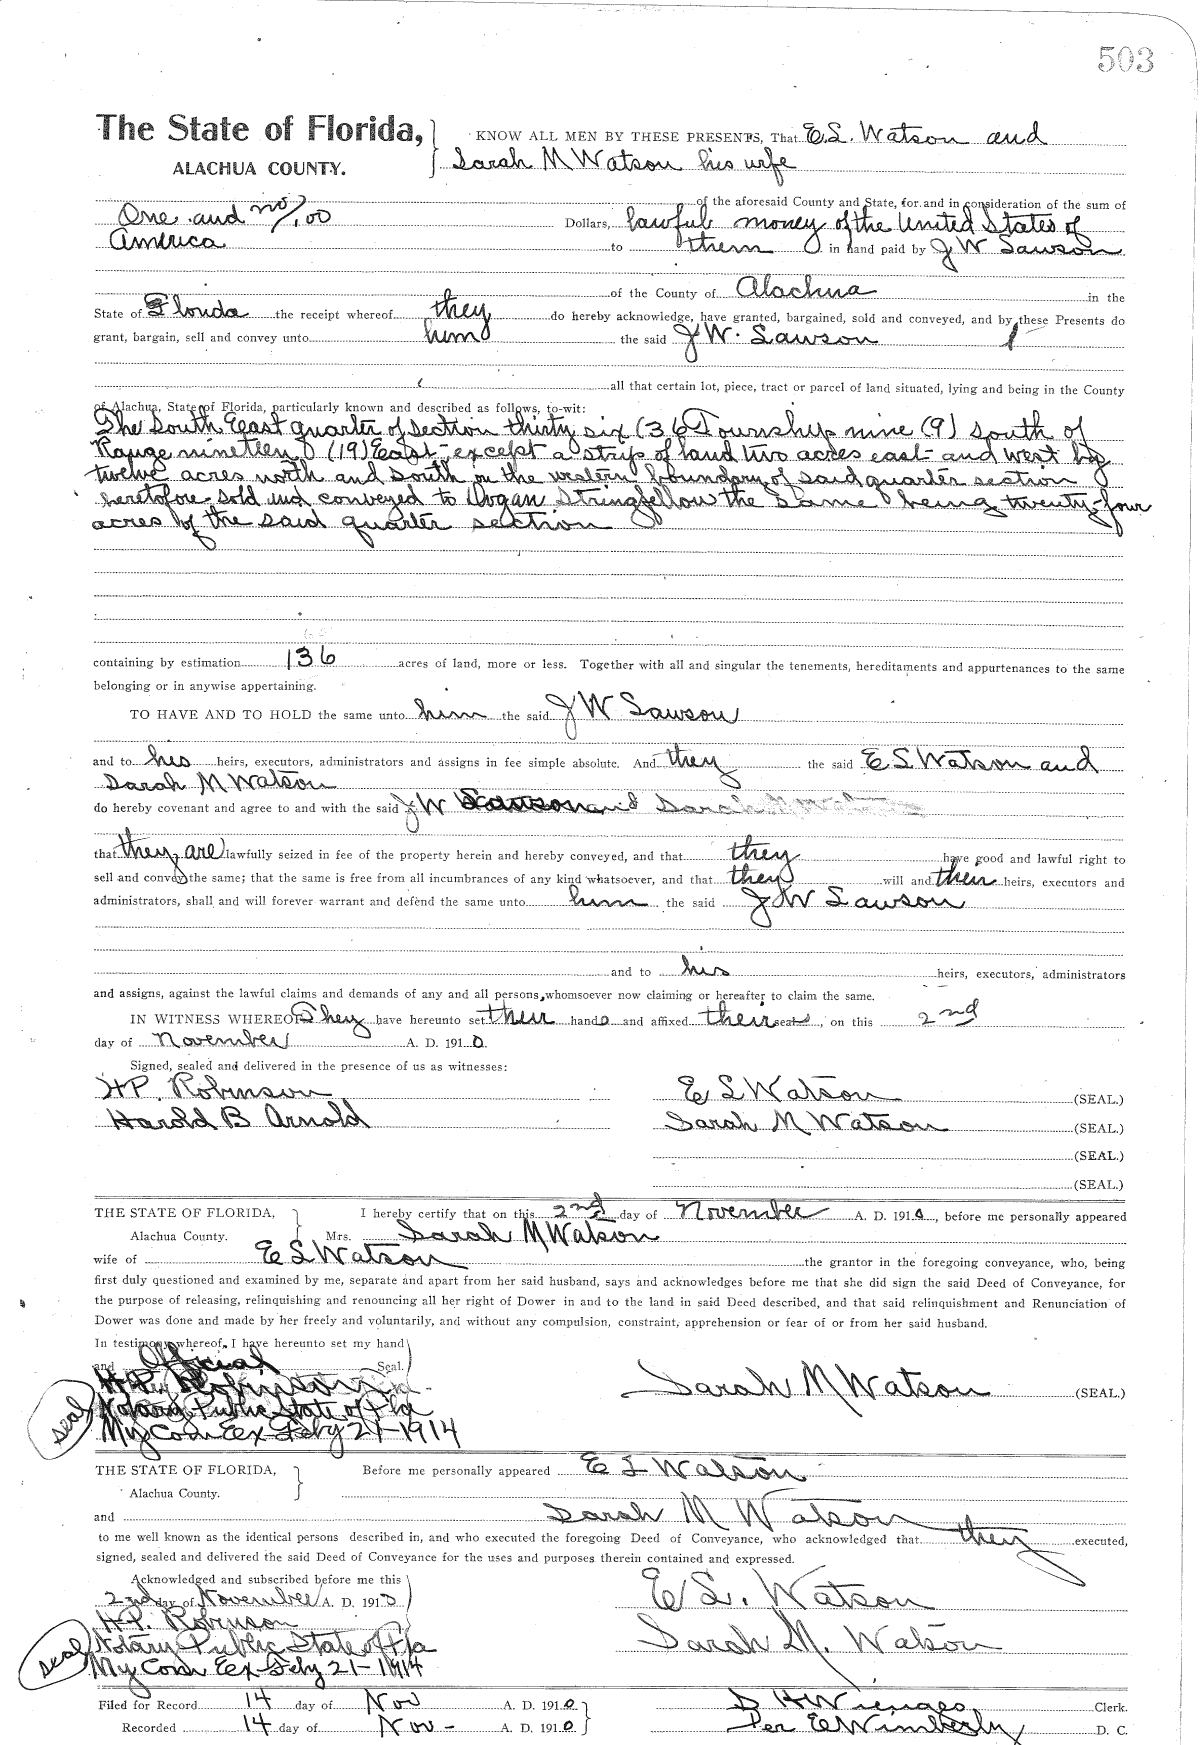 503
The State of Florida, KNOW ALL MEN BY THESE PRESENTS, That E.S. Watson and
ALACHUA COUNTY. Sarah M Watson his wife
of the aforesaid County and State, for and in consideration of the sum of
One and no/100 Dollars, lawful money of the United States of
America to them in hand paid by J W Lawson
of the County of Alachua in the
State of Florida the receipt whereof they do hereby acknowledge, have granted, bargained, sold and conveyed, and by these Presents do
grant, bargain, sell and convey unto him the said J W. Lawson
all that certain lot, piece, tract or parcel of land situated, lying and being in the County
of Alachua, State of Florida, particularly known and described as follows, to-wit:
The South East quarter of section thirty six (36 Township nine (9) south of
Range nineteen (19) East except a strip of land two acres east and west by
twelve acres north and south on the western boundary of said quarter section
heretofore sold and conveyed to Dogan Stringfellow the same being twenty-four
acres of the said quarter section
containing by estimation 136 acres of land, more or less. Together with all and singular the tenements, hereditaments and appurtenances to the same
belonging or in anywise appertaining.
TO HAVE AND TO HOLD the same unto him the said J W Lawson
and to his heirs, executors, administrators and assigns in fee simple absolute. And they the said E S Watson and
Sarah M Watson
do hereby covenant and agree to and with the said J W Lawson and Sarah M Watson
that they are lawfully seized in fee of the property herein and hereby conveyed, and that they have good and lawful right to
sell and convey the same; that the same is free from all incumbrances of any kind whatsoever, and that they will and their heirs, executors and
administrators, shall and will forever warrant and defend the same unto him the said J W Lawson
and to his heirs, executors, administrators
and assigns, against the lawful claims and demands of any and all persons, whomsoever now claiming or hereafter to claim the same.
IN WITNESS WHEREOF They have hereunto set their hands and affixed their seals, on this 2nd
day of November A. D. 1910.
Signed, sealed and delivered in the presence of us as witnesses:
H P. Robinson E S Watson (SEAL.)
Harold B Arnold Sarah M Watson (SEAL.)
(SEAL.)
(SEAL.)
THE STATE OF FLORIDA, I hereby certify that on this 2nd day of November A. D. 1910, before me personally appeared
Alachua County. Mrs. Sarah M Watson
wife of E S Watson the grantor in the foregoing conveyance, who, being
first duly questioned and examined by me, separate and apart from her said husband, says and acknowledges before me that she did sign the said Deed of Conveyance, for
the purpose of releasing, relinquishing and renouncing all her right of Dower in and to the land in said Deed described, and that said relinquishment and Renunciation of
Dower was done and made by her freely and voluntarily, and without any compulsion, constraint, apprehension or fear of or from her said husband.
In testimony whereof, I have hereunto set my hand
and Official Seal.
H P. Robinson Sarah M Watson (SEAL.)
seal Notary Public State of Fla
My Com Ex Feby 21-1914
THE STATE OF FLORIDA, Before me personally appeared E S Watson
Alachua County.
and Sarah M Watson
to me well known as the identical persons described in, and who executed the foregoing Deed of Conveyance, who acknowledged that they executed,
signed, sealed and delivered the said Deed of Conveyance for the uses and purposes therein contained and expressed.
Acknowledged and subscribed before me this
2nd day of November A. D. 1910 E S. Watson
H P. Robinson Sarah M. Watson
seal Notary Public State of Fla
My Com Ex Feby 21-1914
Filed for Record 14 day of Nov A. D. 1910 D H Wienges Clerk.
Recorded 14 day of Nov - A. D. 1910 Per E Wimberly D. C.